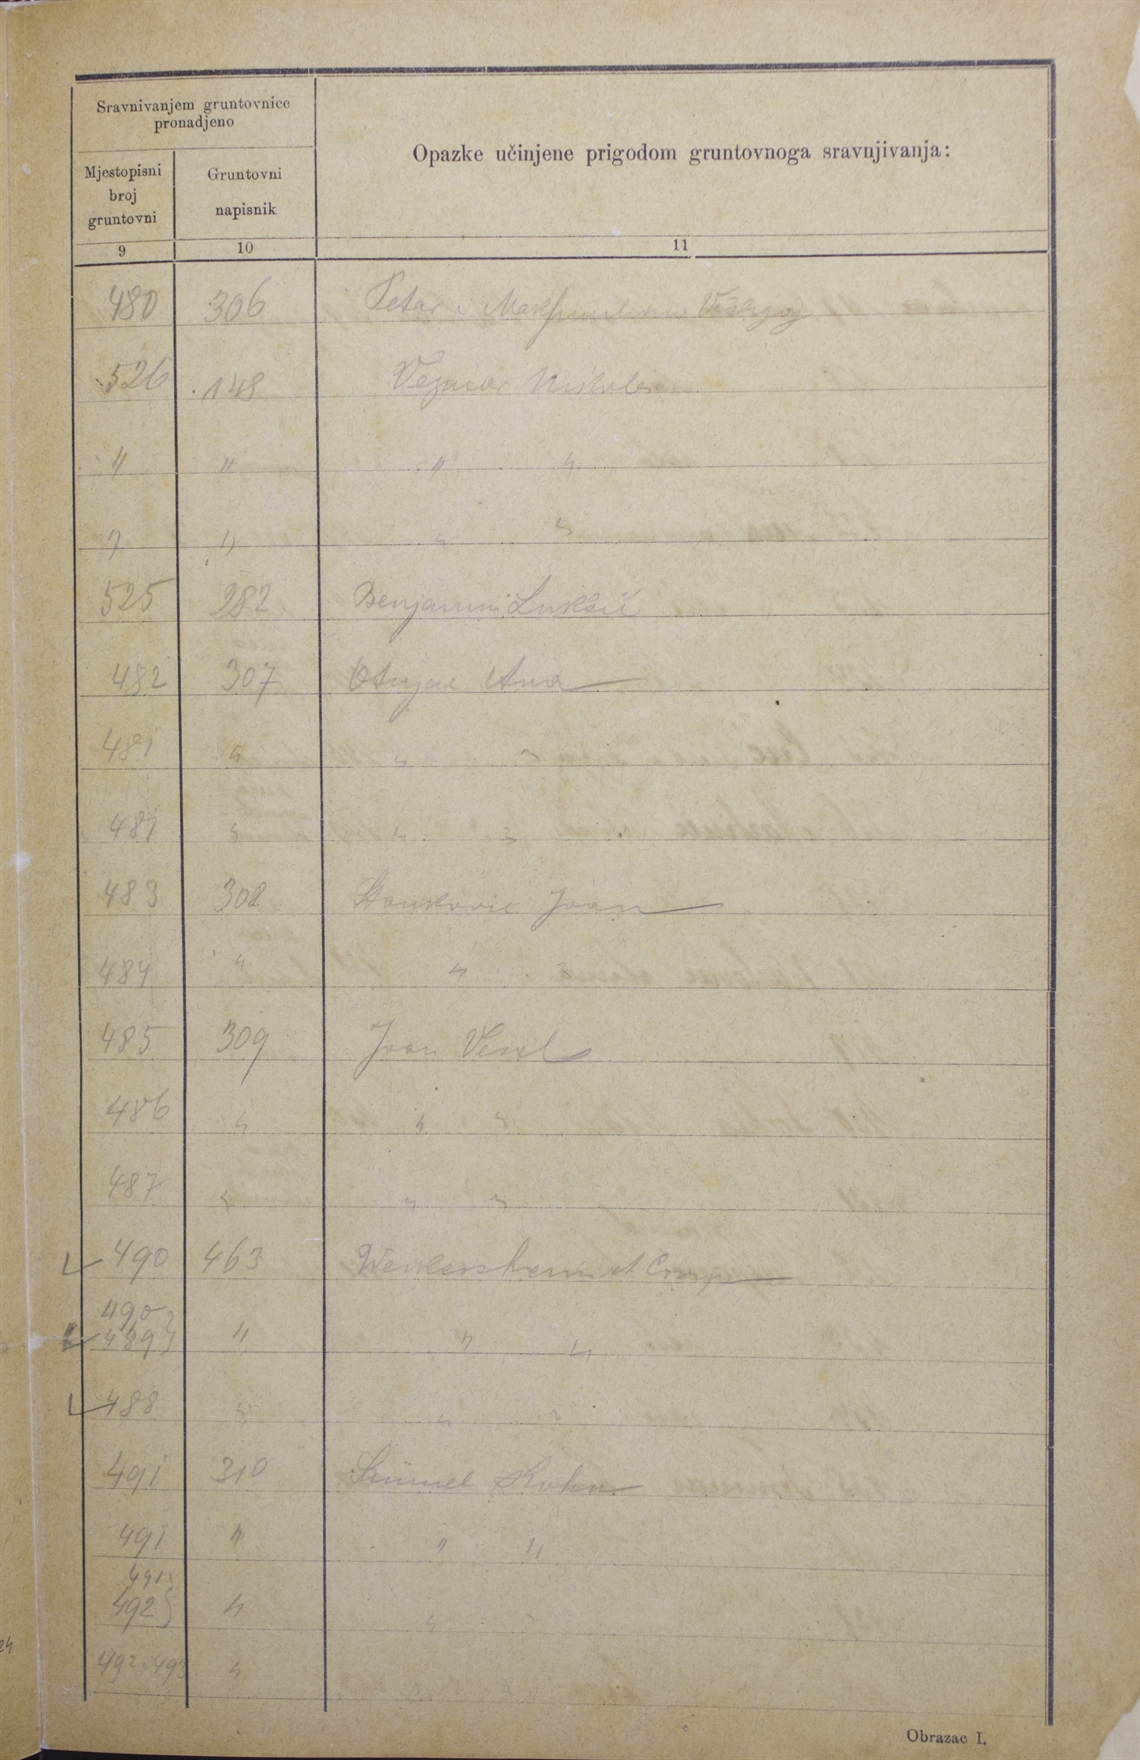 Sravnivanjem gruntovnice
pronadjeno
Opazke učinjene prigodom gruntovnoga sravnjivanja:
Mjestopisni
broj
gruntovni
Gruntovni
napisnik
9 10 11
480 306 Petar i
526 148
" " " "
" " " "
525 282 Benjamin Lukšić
482 307 Ana
481 " " "
481 " " "
483 308 Stanković Joan
484 " " "
485 309 Joan Vesel
486 " " "
487 " " "
490 463 et Comp
490
489 } " " "
488 " " "
491 310 Samuel Kohn
491 " " "
491
492 } " " "
492, 493 "
Obrazac I.